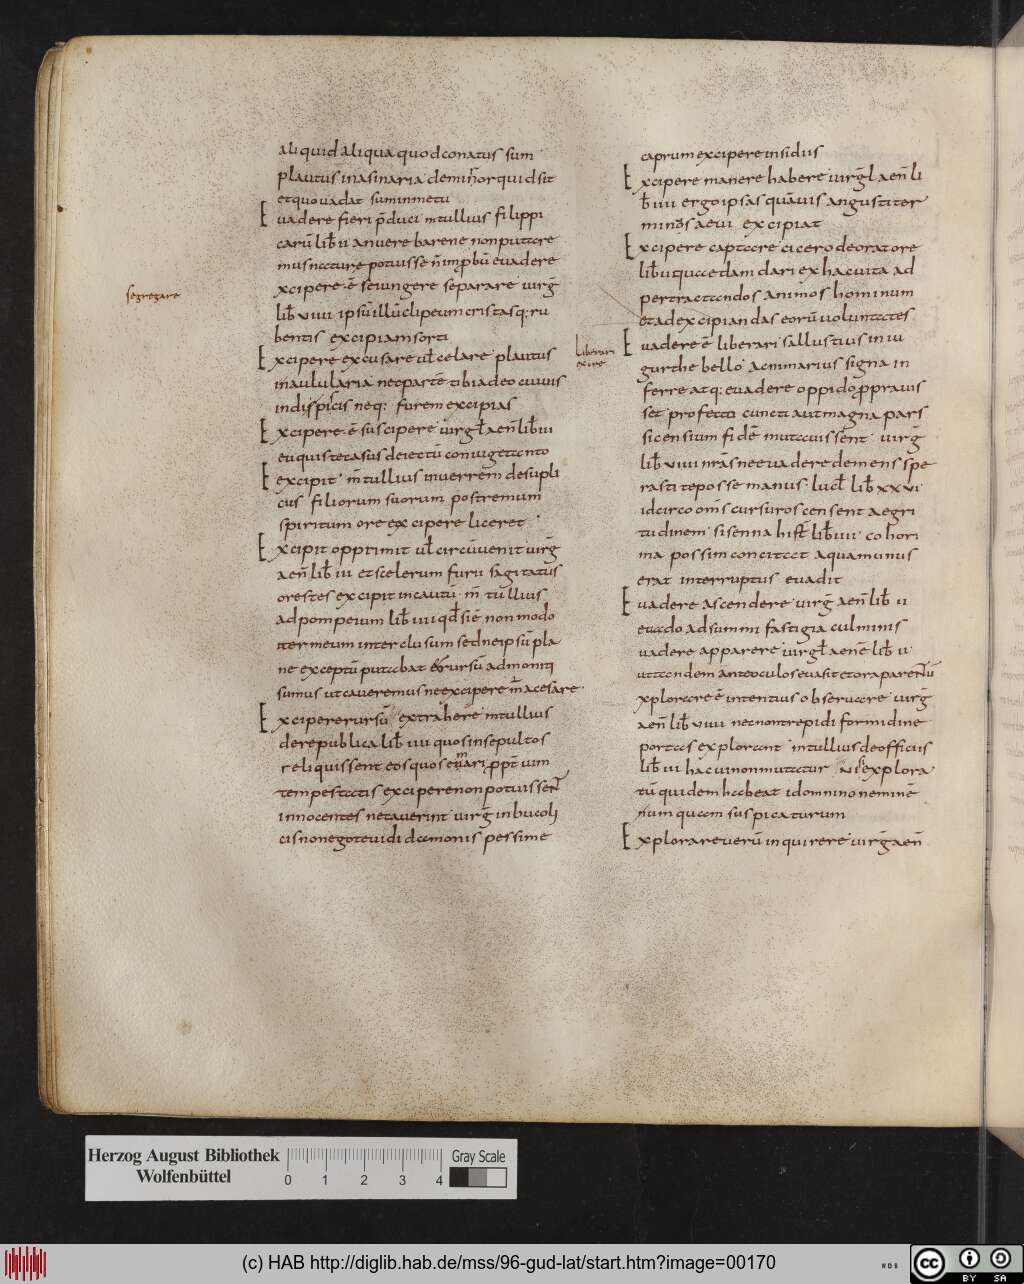 aliquid aliqua quod conatus sum
plautus inasinaria deminor quid sit
et quo uadat suminmetu
Euadere fieri p̄duci mtullius filippi
carū lib̄ ii anuere barene non putare
mus nature potuisse n̄ improbū euadere
xcipere ē seiungere separare uirḡ
segregare
lib̄ uiiii ipsū illū clipeum cristasq; ru
bentis excipiam sorti
Excipere excusare ul̄ celare plautus
inaulularia neopartē tibi adeo cuiuis
indispicis neq; furem excipias
Excipere ē suscipere uirgl̄ aen̄ lib̄ iii
euquis tecasus deiectū coniuge tanto
Eexcipit m̄ tullius inuerrem desupli
cus filiorum suorum postremum
spiritum ore excipere liceret
Excipit opprimit ul̄ circūuenit uirḡ
aen̄ lib̄ iii et scelerum furiis agitatus
orestes excipit incautū m̄ tullius
ad pompeium lib̄ iiii qd̄ siē non modo
iter meum interclusum sed neipsū pla
ne exceptū putabat et rursū admoniti
sumus ut caueremus neexcipere m̄ acesare
Excipere rursū extrahere mtullius
derepublica lib̄ iiii quos insepultos
reliquissent eos quos e mari ꝓpt̄ uim
tempestatis excipere non potuissent
innocentes necauerint uirḡ in bucoli
cis non ego te uidi damonis pessime
caprum excipere insidiis
Excipere manere habere uirgl̄ aen̄ li
b̄ iiii ergo ipsas quāuis angusti ter
minos aeui excipiat
Excipere captare cicero deoratore
lib̄ ii quaedam dari ex hac uita ad
pertractandos animos hominum
et ad excipiandas eorū uoluntates
liberari
exire
Euadere ē liberari sallustius in iu
gurthe bello acmmarius signa in
ferre atq; euadere oppido, ꝓprauis
set profecto cuncti aut magna pars
sicensium fidē mutauissent uirḡ
lib̄ uiiii nr̄as ne euadere demens spe
rasti te posse manus lucl̄ lib̄ xxvi
idcirco om̄s cursuros censent aegri
tudinem sisenna hist̄ lib̄ iiii cohori
ma possim concitat aquamunus
erat interruptus euadit
Euadere ascendere uirḡ aen̄ lib̄ ii
euado ad summi fastigia culminis
uadere apparere uirgl̄ aenē lib̄ ii
ut tandem ante oculos euasit et ora parentū
xplorare ē intentius obseruare uirḡ
aen̄ lib̄ uiiii nec non trepidi formidine
portas explorant mtullius deofficiis
lib̄ iii hac ui non mutatur Nisi explora
tū quidem habeat id omnino neminē
num quam suspicaturum
Explorare uerū inquirere uirḡ aen̄
Herzog August Bibliothek
Wolfenbüttel
0 1 2 3 4
Gray Scale
(c) HAB http://diglib.hab.de/mss/96-gud-lat/start.htm?image=00170
WDB
cc BY SA